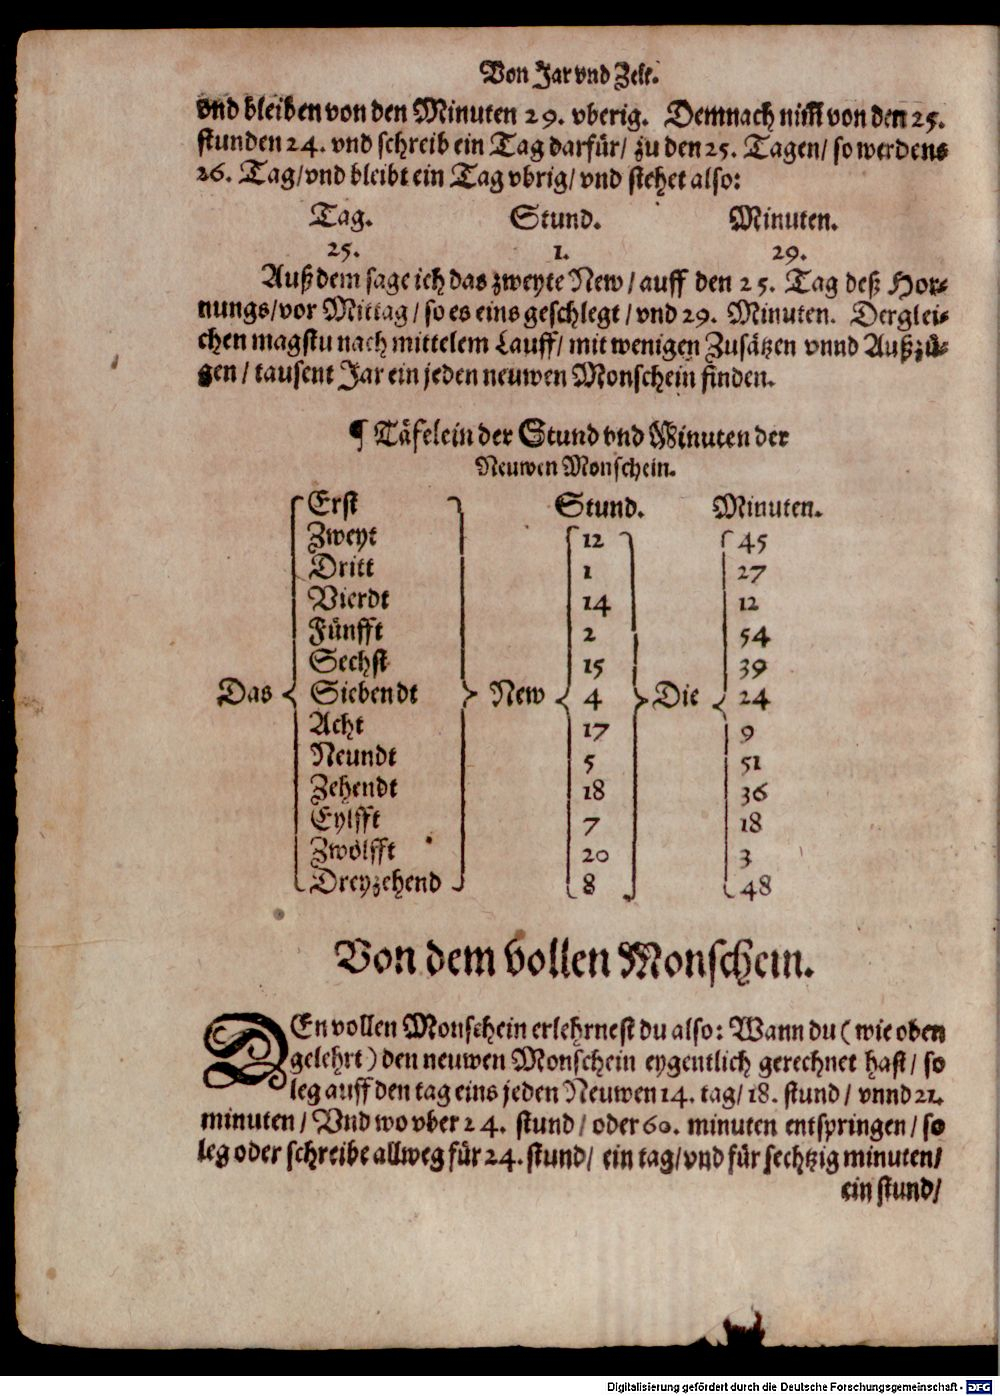 Von Jar vnd Zeit.
vnd bleiben von den Minuten 29. vberig. Demnach nim̃ von den 25.
stunden 24. vnd schreib ein Tag darfür/ zu den 25. Tagen/ so werdens
26. Tag/ vnd bleibt ein Tag vbrig/ vnd stehet also:
Tag. Stund. Minuten.
25. 1. 29.
Auß dem sage ich das zweyte New/ auff den 25. Tag deß Hor-
nungs/ vor Mittag/ so es eins geschlegt/ vnd 29. Minuten. Derglei-
chen magstu nach mittelem Lauff/ mit wenigen Zusätzen vnnd Außzü-
gen/ tausent Jar ein jeden neuwen Monschein finden.
¶ Täfelein der Stund vnd Minuten der
Neuwen Monschein.
Erst Stund. Minuten.
Zweyt 12 45
Dritt 1 27
Vierdt 14 12
Fünfft 2 54
Sechst 15 39
Das Siebendt New 4 Die 24
Acht 17 9
Neundt 5 51
Zehendt 18 36
Eylfft 7 18
Zwölfft 20 3
Dreyzehend 8 48
Von dem vollen Monschein.
DEn vollen Monschein erlehrnest du also: Wann du (wie oben
gelehrt) den neuwen Monschein eygentlich gerechnet hast/ so
leg auff den tag eins jeden Neuwen 14. tag/ 18. stund/ vnnd 21.
minuten/ Vnd wo vber 24. stund/ oder 60. minuten entspringen/ so
leg oder schreibe allweg für 24. stund/ ein tag/ vnd für sechtzig minuten/
ein stund/
Digitalisierung gefördert durch die Deutsche Forschungsgemeinschaft - DFG